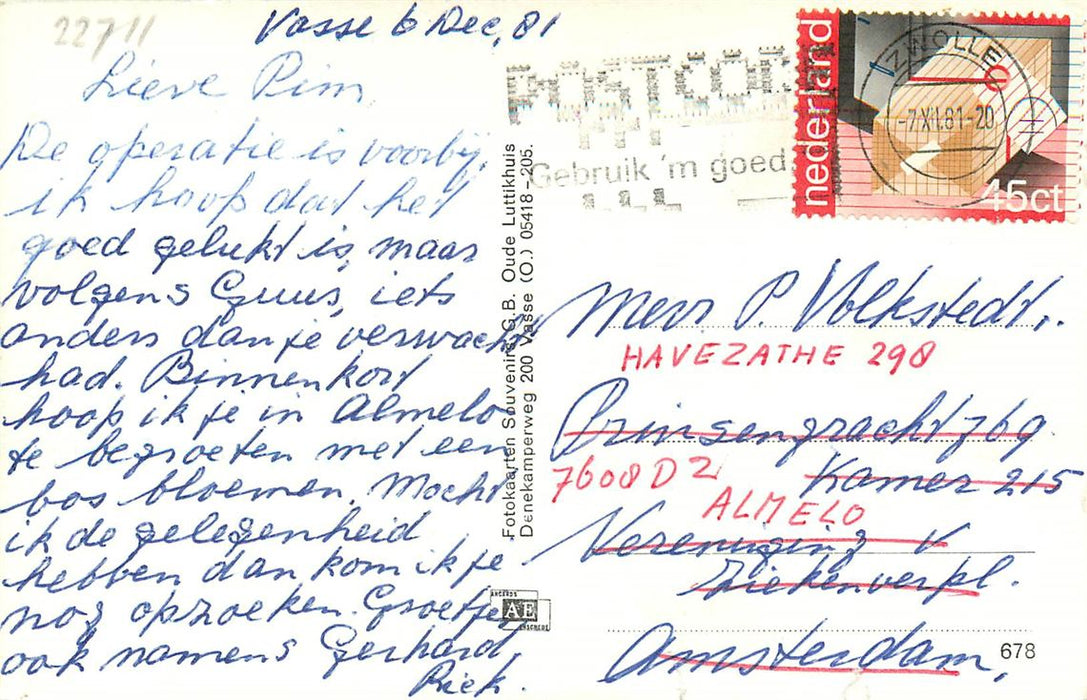 22711
Vasse 6 Dec, 81
Lieve Pim,
De operatie is voorbij,
ik hoop dat het
goed gelukt is, maar
volgens Guus, iets
anders dan je verwacht
had. Binnenkort
hoop ik je in Almelo
te begroeten met een
bos bloemen. Mocht
ik de gelegenheid
hebben dan kom ik je
nog opzoeken. Groetjes
ook namens Gerhard,
Riek.
Fotokaarten Souvenirs G.B. Oude Luttikhuis
Denekamperweg 200 Vasse (O.) 05418-205.
ANCARDS
AE
ENSCHEDE
POSTCODE
Gebruik 'm goed
ZWOLLE
-7.XII.81-20
nederland
45ct
Mevr P. Volkstedt,.
HAVEZATHE 298
Prinsengracht 769
7608 DZ
Kamer 215
ALMELO
Vereniging v
Ziekenverpl.
Amsterdam,
678